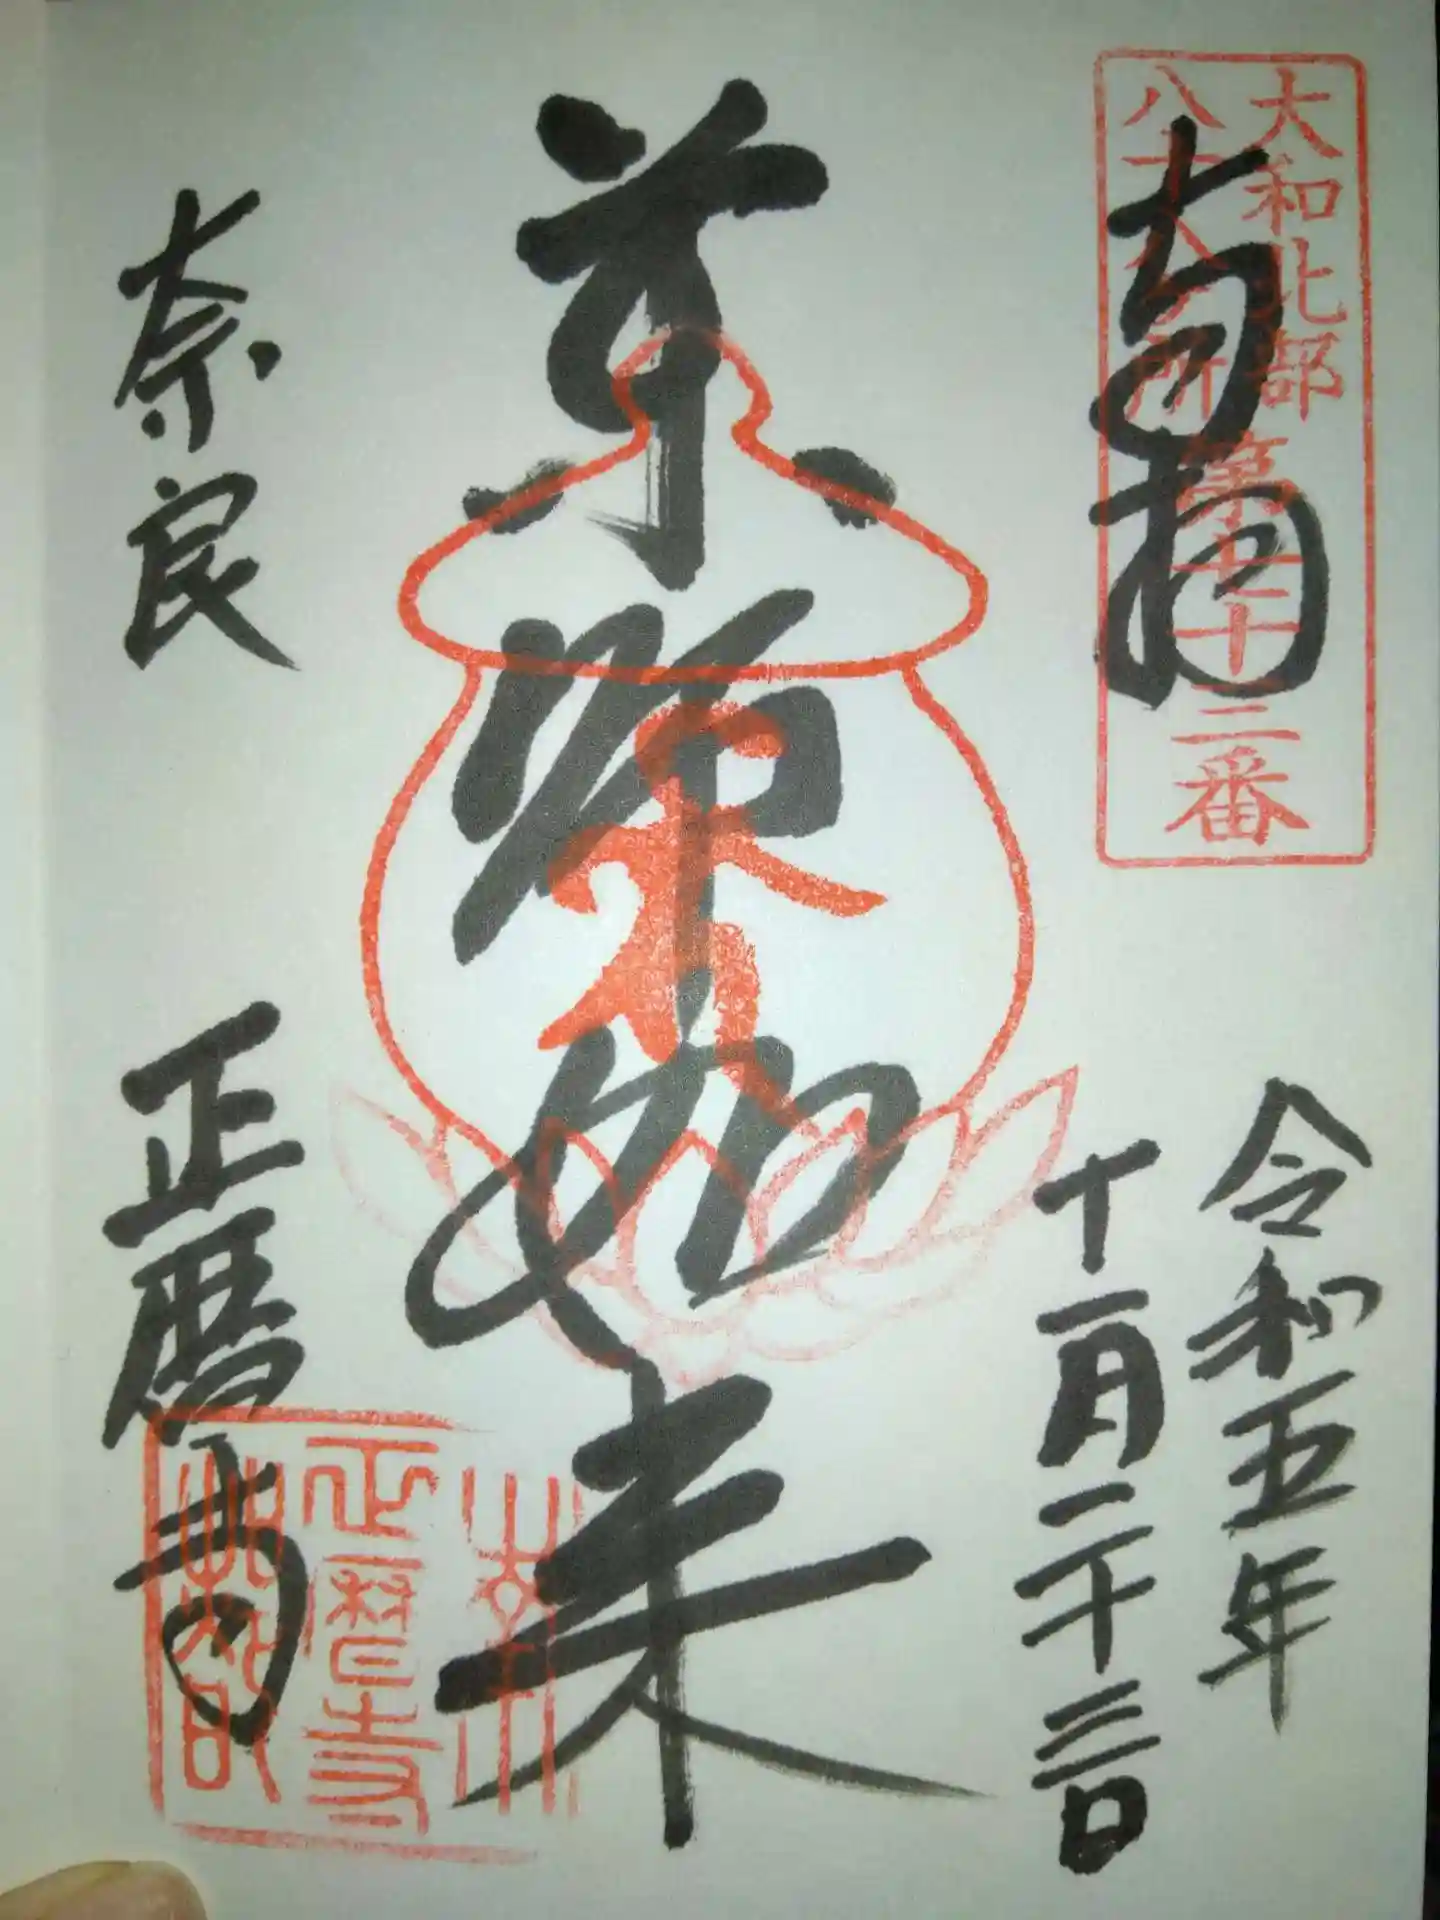 大和北部
八十八ヶ所
第七十三番
奉拝
令和五年
十一月二十三日
薬師如来
奈良
正暦寺
正暦寺